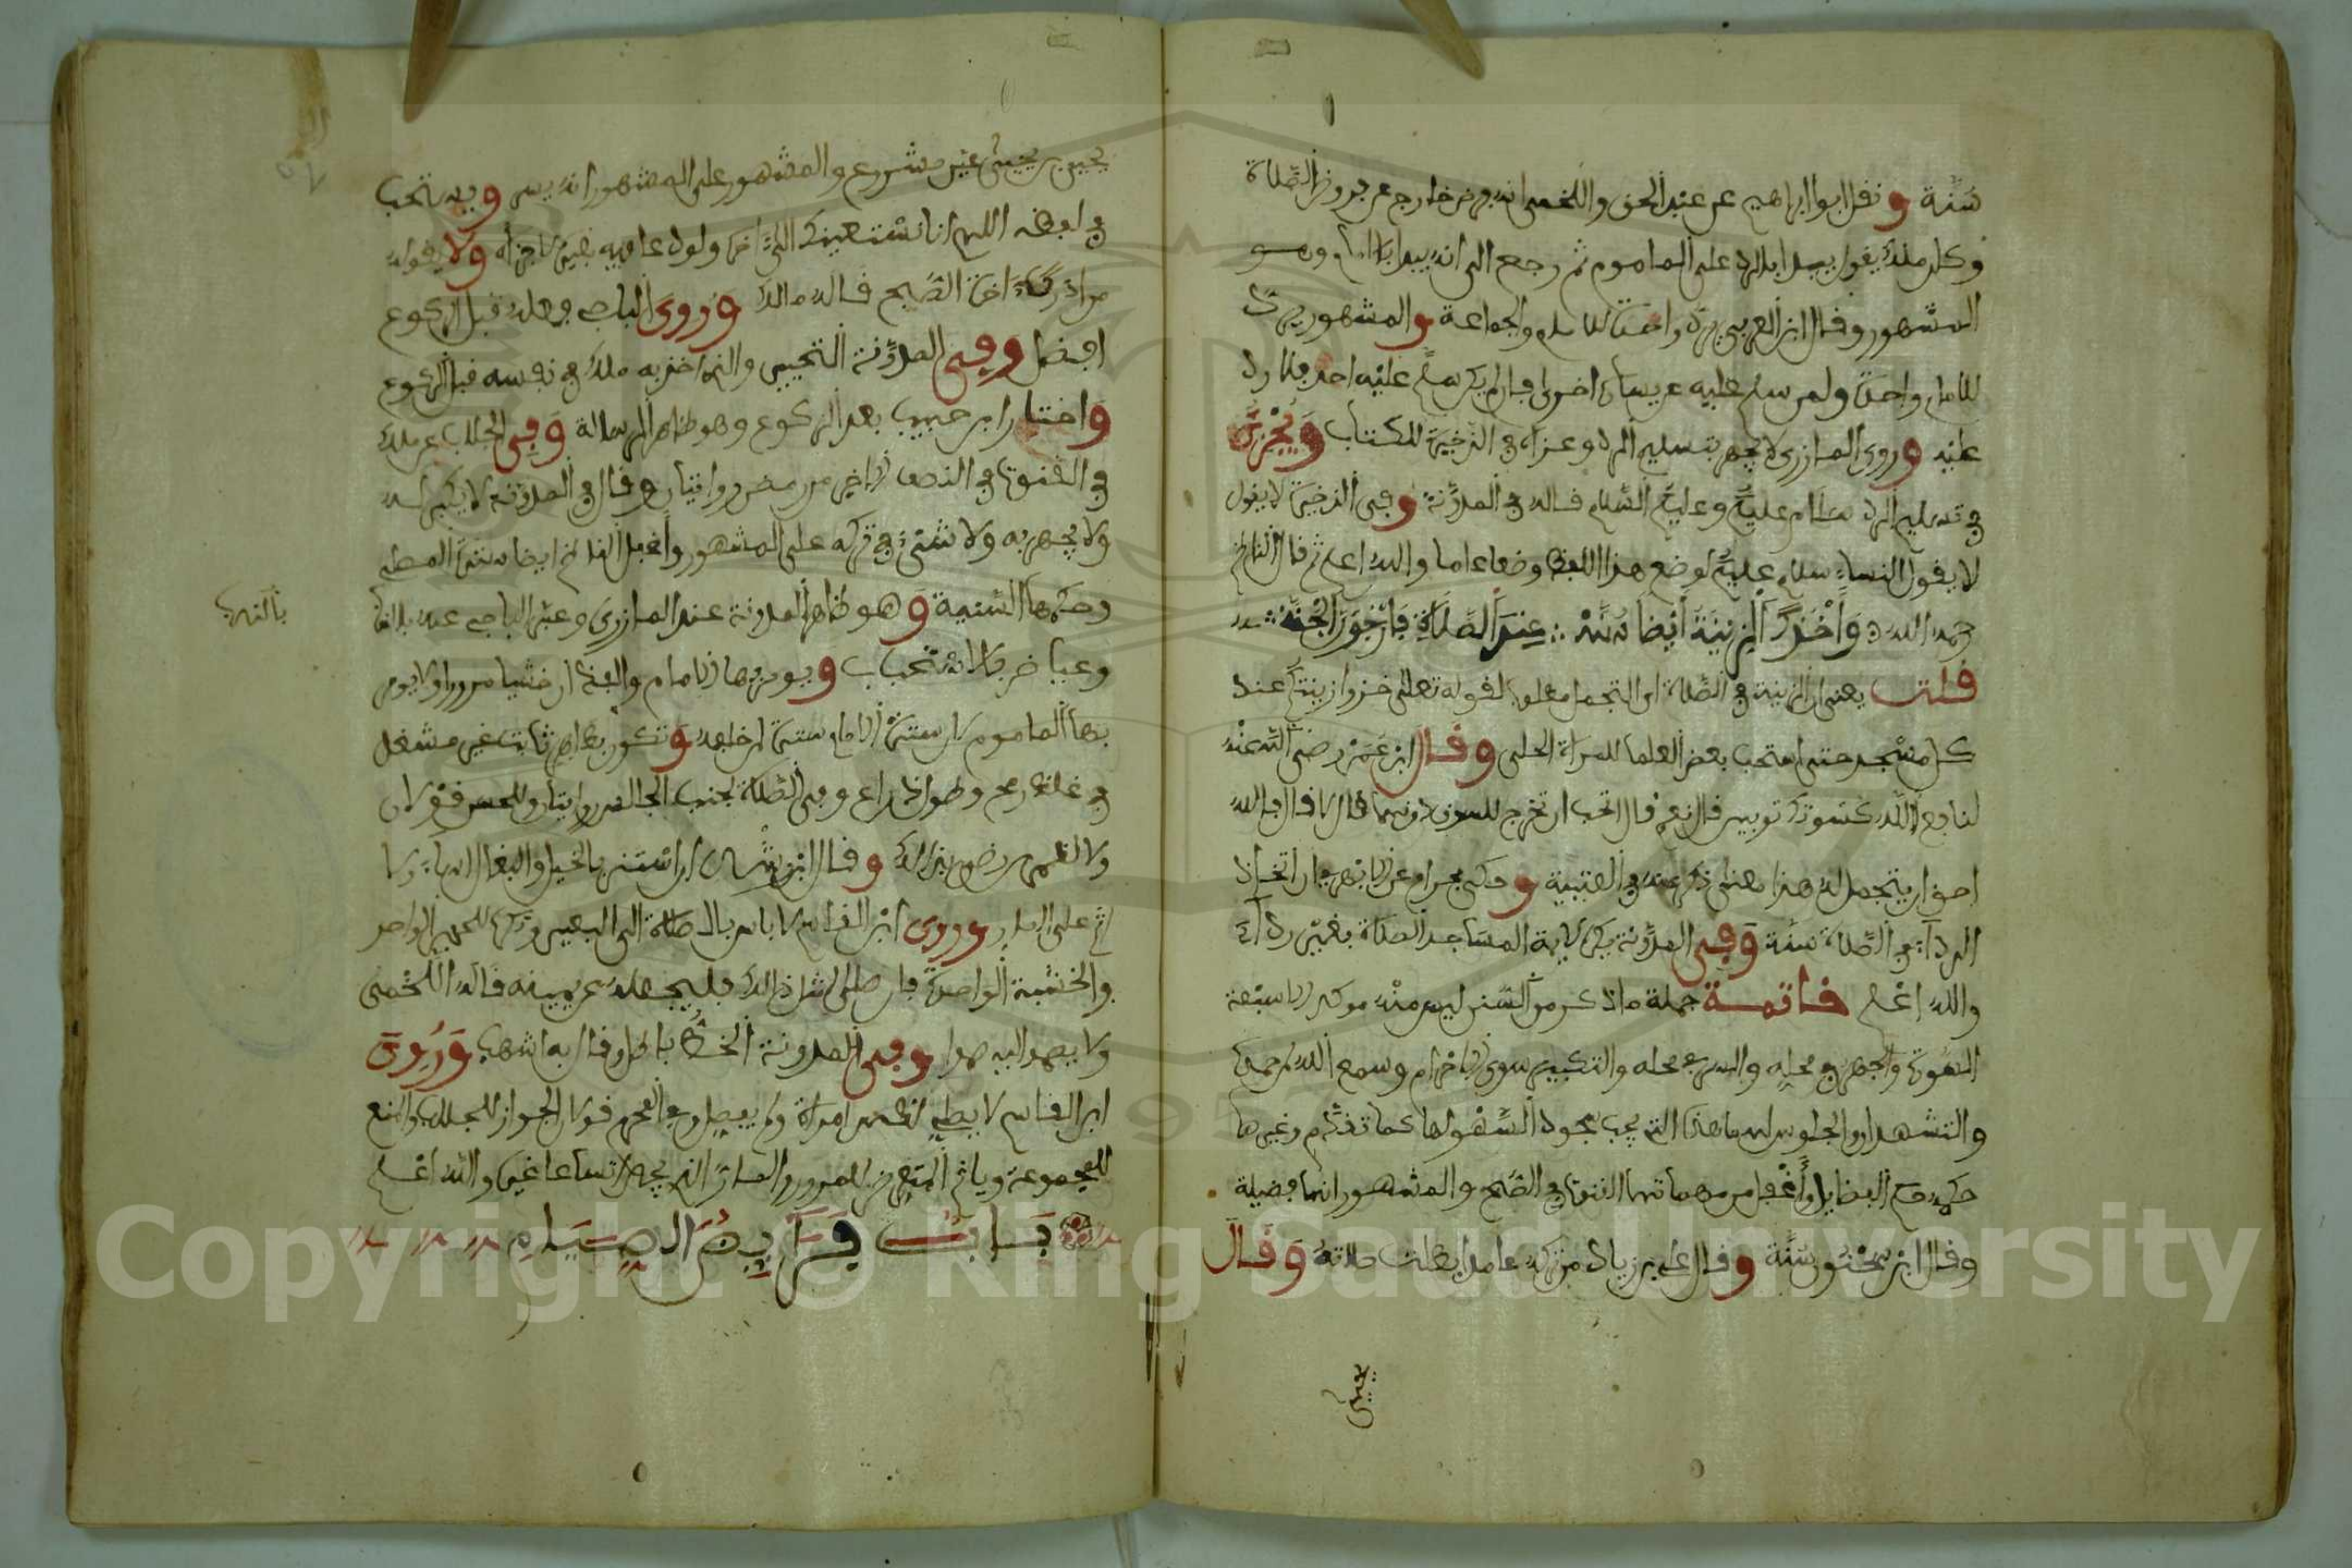 سنة ونقل ابو ابراهيم عن عبد الحق واللخمي انه فرض خارج عن فروض الصلاة
وكان ملك يقول يبدا بالرد على الماموم ثم رجع الى انه يبدا بالامام وهو
المشهور وقال ابن العربي يرد واحدة للامام والجماعة والمشهور يرد
للامام واحدة ولمن سلم عليه عن يساره اخرى فان لم يكن سلم عليه احد فلا رد
عليه وروى المازري لا يجهر بتسليم الرد وعزاه في الذخيرة للكتاب ويجزئ
في تسليم الرد سلام عليكم وعليكم السلام قاله في المدونة وفي الذخيرة لا يقول
لا يقول النساء سلام عليكم لوضع هذا اللفظ وضعا عاما والله اعلم ثم قال الناظم
رحمه الله وأخذك الزينة أيضا سنة عند الصلاة فارجون الجنة
قلت يعني ان الزينة في الصلاة اي التجمل مطلوب لقوله تعلى خذوا زينتكم عند
كل مسجد حتى استحب بعض العلما للمراة الحلي وقال ابن عمر رضي الله عنه
لنافع الم كسوتك ثوبين قال نعم قال اتحب ان تخرج للسوق دونهما قال لا قال فالله
احق ان يتجمل له هذا معنى ذكره عنه في العتبية وحكى بهرام عن الابهري ان اتخاذ
الرداء في الصلاة سنة وفي المدونة يكره لايمة المساجد الصلاة بغير رداء
والله اعلم خاتمة جملة ما ذكر من السنن ليس منه موكد الا سبعة
السورة والجهر في محله والسر في محله والتكبير سوى الاحرام وسمع الله لمن حمده
والتشهدان والجلوس لهما هذه التي يجب سجود السهو لها كما تقدم وغيرها
حكمه حكم الفضايل وأغفل من مهماتها القنوت في الصبح والمشهور انها فضيلة
وقال ابن سحنون سنة وقال علي بن زياد من تركه عامدا بطلت صلاته وقال
يحيى
يحيى بن يحيى غير مشروع والمشهور على المشهور انه يسر وبه يستحب
في لفظه اللهم انا نستعينك الى اخره ولو دعا فيه بغيره لاجزاه ولا يقوله
من ادرك اخرة الصبح قاله مالك وروى الباجي فعله قبل الركوع
افضل وفي المدونة التخيير والذي اخذ به ملك في نفسه قبل الركوع
واختار ابن حبيب بعد الركوع وهو ظاهر الرسالة وفي الجلاب عن ملك
في القنوت في النصف الاخير من رمضان روايتان وقال في المدونة لا يكبر له
ولا يجهر به ولا شيء في تركه على المشهور وأغفل الناظم ايضا سترة المصلي
وحكمها السنية وهو ظاهر المدونة عند المازري وعبر الباجي عنه بالندب
بالندب
وعياض بالاستحباب ويومر بها الامام والفذ ان خشيا مرورا ولا يومر
بها الماموم لان سترة الامام سترة لمن خلفه وتكون بطاهر ثابت غير مشغل
في غلظ رمح وطول ذراع وفي الصلاة لجنب الجالس روايتان وللحسن قولان
ولا لظهر رضي بذلك وقال ابن شاس ان استتر بالخيل والبغال اساء ولا
اثم على الابل وروى ابن القاسم لا باس بالصلاة الى البعير وتكره للحجر الواحد
والخشبة الواحدة فان صلى لمثل ذلك فليجعله عن يمينه قاله اللخمي
ولا يصمد اليه صمدا وفي المدونة الخط باطل وقال به اشهب وروى
ابن القاسم لا يصلي لظهر امراة ولم يفصل وفي المحرم قولان الجواز للجلاب والمنع
للمجموعة وياثم المتعرض للمرور والمار الذي يجد اتساعا غيره والله اعلم
باب فرائض الصيام